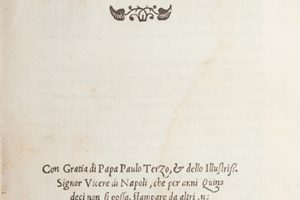 Con Gratia di Papa Paulo Terzo, & dello Illustriss.
Signor Vicere di Napoli, che per anni Quin-
deci non si possa stampare da altri,